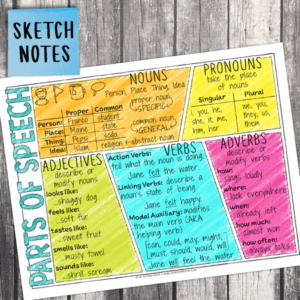 SKETCH
NOTES
PARTS OF SPEECH
NOUNS
Person, Place, Thing, Idea
Proper Common
Person: France student
Place: Maine state
Thing: Pepsi soda
Idea: Islam religion
proper noun
=SPECIFIC=
common noun
=GENERAL=
abstract noun
PRONOUNS
take the place
of nouns
Singular Plural
I, you, he,
she, it, me,
him, her
we, you,
they, us,
them
ADJECTIVES
describe or
modify nouns
looks like:
shaggy dog
feels like:
soft fur
tastes like:
sweet fruit
smells like:
musty towel
sounds like:
shrill scream
VERBS
Action Verbs:
tell what the noun is doing
Jane felt the water
Linking Verbs: describe a
noun's state of being
Jane felt happy
Modal Auxiliary: modifies
the main verb (AKA
helping verb)
[can, could, may, might,
must, should, would, will]
Jane will feel the water
ADVERBS
describe or
modify verbs
how:
sing loudly
where:
look everywhere
when:
already left
how much:
almost won
how often:
always talks